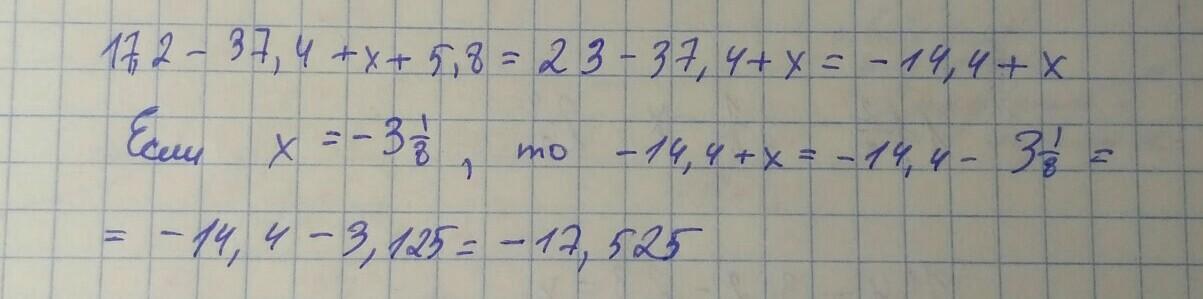 17,2 - 37,4 + x + 5,8 = 23 - 37,4 + x = -14,4 + x
Если x = -3 1/8, то -14,4 + x = -14,4 - 3 1/8 =
= -14,4 - 3,125 = -17,525